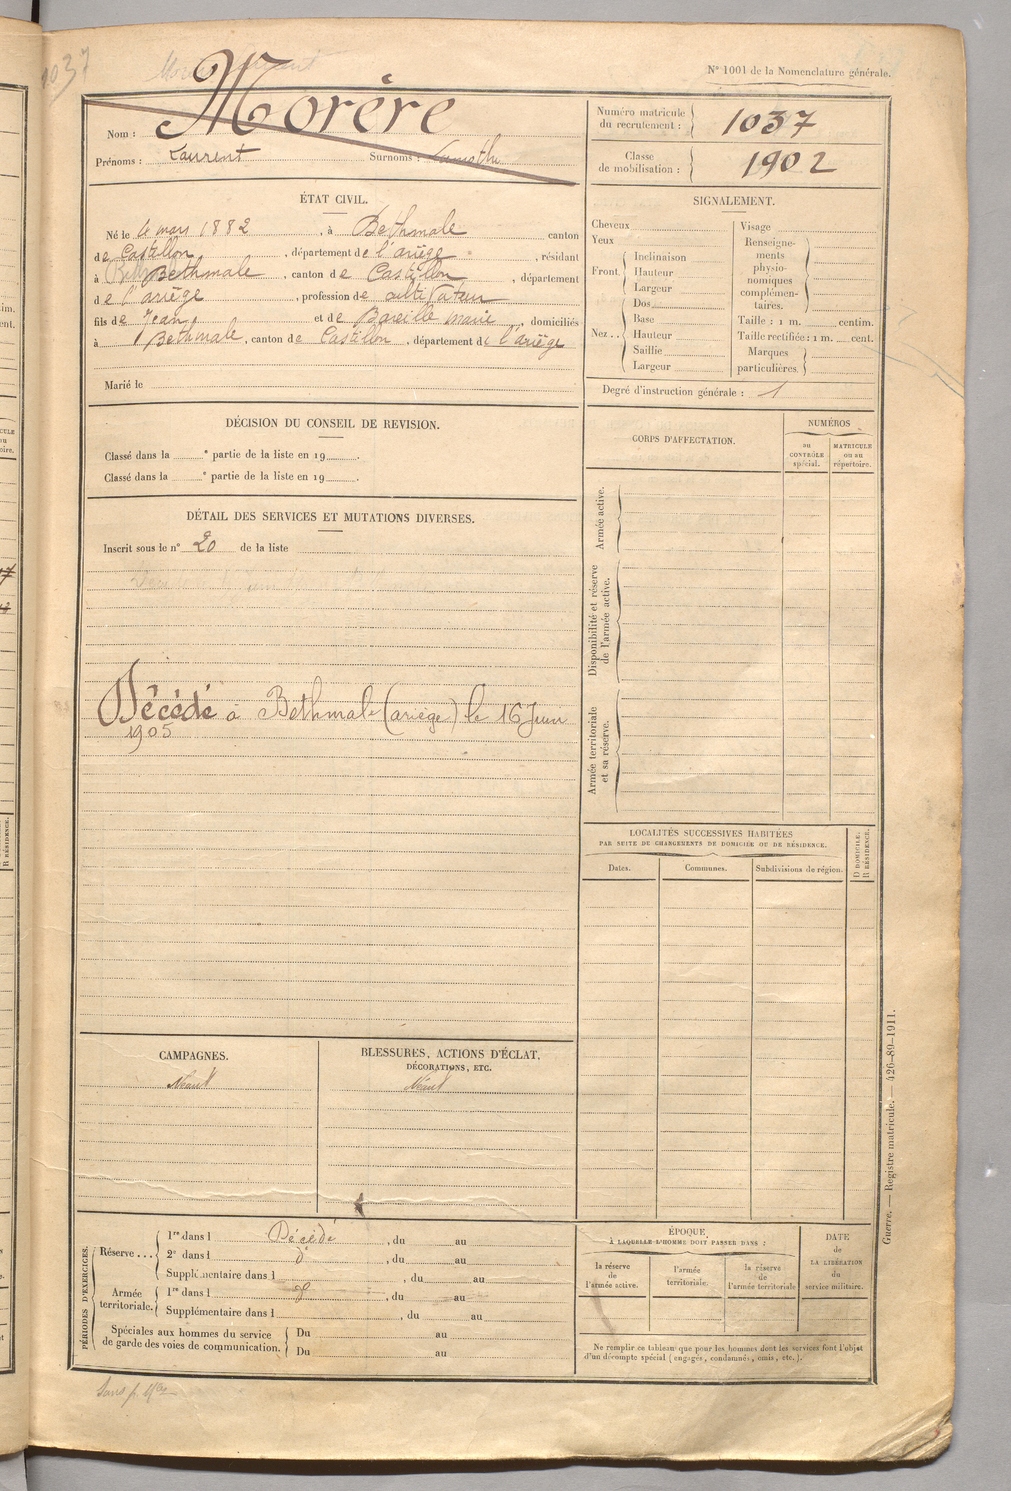 1037
N° 1001 de la Nomenclature générale.
Nom : Morère
Prénoms : Laurent Surnoms :
Numéro matricule du recrutement : 1037
Classe de mobilisation : 1902
ÉTAT CIVIL.
Né le 4 mars 1882, à Bethmale canton
de Castillon, département de l'ariège, résidant
à Bethmale, canton de Castillon, département
de l'ariège, profession de cultivateur
fils de Jean et de Bareille marie, domiciliés
à Bethmale, canton de Castillon, département de l'ariège
Marié le
SIGNALEMENT.
Cheveux
Yeux
Front. Inclinaison
Hauteur
Largeur
Nez.. Dos
Base
Hauteur
Saillie
Largeur
Visage
Renseigne-
ments
physio-
nomiques
complémen-
taires.
Taille : 1 m. centim.
Taille rectifiée : 1 m. cent.
Marques
particulières.
Degré d'instruction générale : 1
DÉCISION DU CONSEIL DE REVISION.
Classé dans la e partie de la liste en 19 .
Classé dans la e partie de la liste en 19 .
CORPS D'AFFECTATION.
NUMÉROS
au CONTRÔLE spécial.
MATRICULE ou au répertoire.
Armée active.
Disponibilité et réserve de l'armée active.
Armée territoriale et sa réserve.
DÉTAIL DES SERVICES ET MUTATIONS DIVERSES.
Inscrit sous le n° 20 de la liste
Décédé à Bethmale (ariège) le 16 Juin
1905
LOCALITÉS SUCCESSIVES HABITÉES
PAR SUITE DE CHANGEMENTS DE DOMICILE OU DE RÉSIDENCE.
Dates.
Communes.
Subdivisions de région.
D DOMICILE.
R RÉSIDENCE.
CAMPAGNES.
Néant
BLESSURES, ACTIONS D'ÉCLAT,
DÉCORATIONS, ETC.
Néant
PÉRIODES D'EXERCICES.
Réserve... 1re dans l Décédé, du au
2e dans l d°, du au
Supplémentaire dans l , du au
Armée territoriale. 1re dans l d°, du au
Supplémentaire dans l , du au
Spéciales aux hommes du service
de garde des voies de communication. Du au
Du au
ÉPOQUE
À LAQUELLE L'HOMME DOIT PASSER DANS :
la réserve de l'armée active.
l'armée territoriale.
la réserve de l'armée territoriale
DATE de LA LIBÉRATION du service militaire.
Ne remplir ce tableau que pour les hommes dont les services font l'objet
d'un décompte spécial (engagés, condamnés, omis, etc.).
Guerre. — Registre matricule. — 426-89-1911.